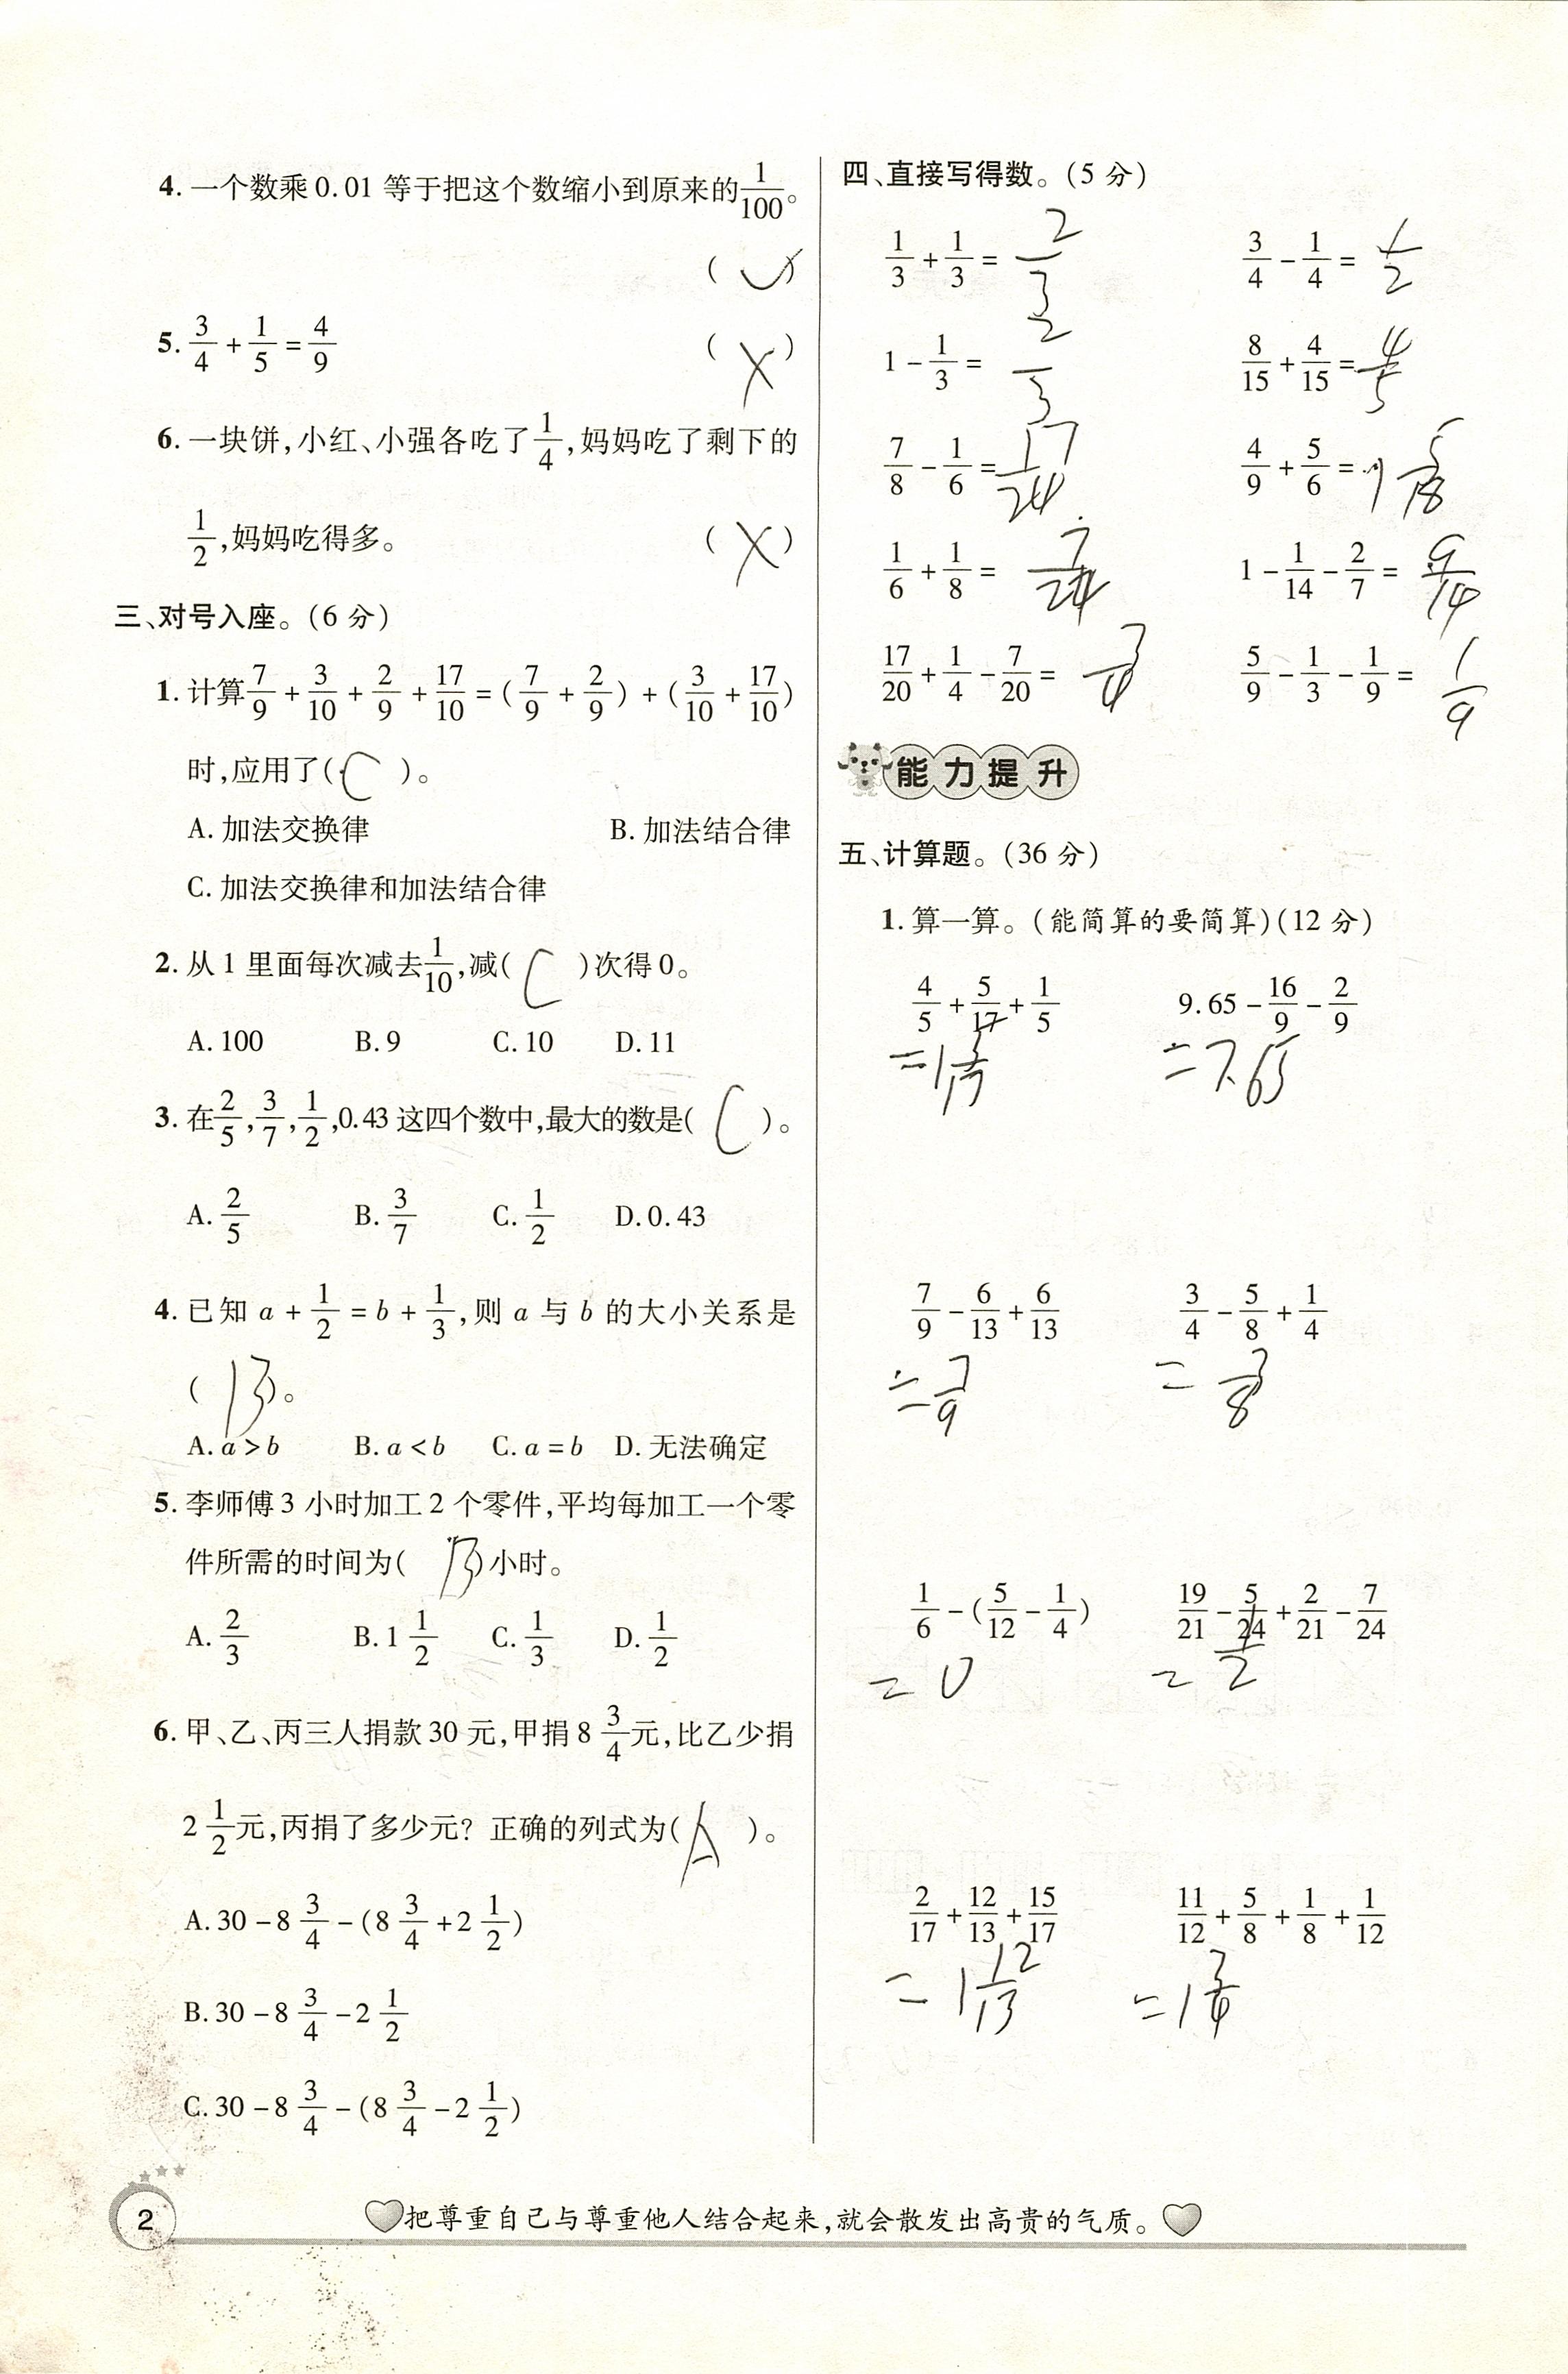 4. 一个数乘0.01等于把这个数缩小到原来的1/100。
( ✓ )
5. 3/4 + 1/5 = 4/9 ( × )
6. 一块饼,小红、小强各吃了1/4,妈妈吃了剩下的
1/2,妈妈吃得多。 ( × )
三、对号入座。(6分)
1. 计算7/9 + 3/10 + 2/9 + 17/10 = (7/9 + 2/9) + (3/10 + 17/10)
时,应用了( C )。
A. 加法交换律 B. 加法结合律
C. 加法交换律和加法结合律
2. 从1里面每次减去1/10,减( C )次得0。
A. 100 B. 9 C. 10 D. 11
3. 在2/5,3/7,1/2,0.43这四个数中,最大的数是( C )。
A. 2/5 B. 3/7 C. 1/2 D. 0.43
4. 已知 a + 1/2 = b + 1/3,则 a 与 b 的大小关系是
( B )。
A. a > b B. a < b C. a = b D. 无法确定
5. 李师傅3小时加工2个零件,平均每加工一个零
件所需的时间为( B )小时。
A. 2/3 B. 1 1/2 C. 1/3 D. 1/2
6. 甲、乙、丙三人捐款30元,甲捐8 3/4元,比乙少捐
2 1/2元,丙捐了多少元? 正确的列式为( A )。
A. 30 - 8 3/4 - (8 3/4 + 2 1/2)
B. 30 - 8 3/4 - 2 1/2
C. 30 - 8 3/4 - (8 3/4 - 2 1/2)
四、直接写得数。(5分)
1/3 + 1/3 = 2/3 3/4 - 1/4 = 1/2
1 - 1/3 = 2/3 8/15 + 4/15 = 4/5
7/8 - 1/6 = 17/24 4/9 + 5/6 = 1 5/18
1/6 + 1/8 = 7/24 1 - 1/14 - 2/7 = 9/14
17/20 + 1/4 - 7/20 = 3/4 5/9 - 1/3 - 1/9 = 1/9
能力提升
五、计算题。(36分)
1. 算一算。(能简算的要简算)(12分)
4/5 + 5/17 + 1/5 9.65 - 16/9 - 2/9
= 1 5/17 = 7.65
7/9 - 6/13 + 6/13 3/4 - 5/8 + 1/4
= 7/9 = 3/8
1/6 - (5/12 - 1/4) 19/21 - 5/24 + 2/21 - 7/24
= 0 = 1/2
2/17 + 12/13 + 15/17 11/12 + 5/8 + 1/8 + 1/12
= 1 12/13 = 1 3/4
2
把尊重自己与尊重他人结合起来,就会散发出高贵的气质。